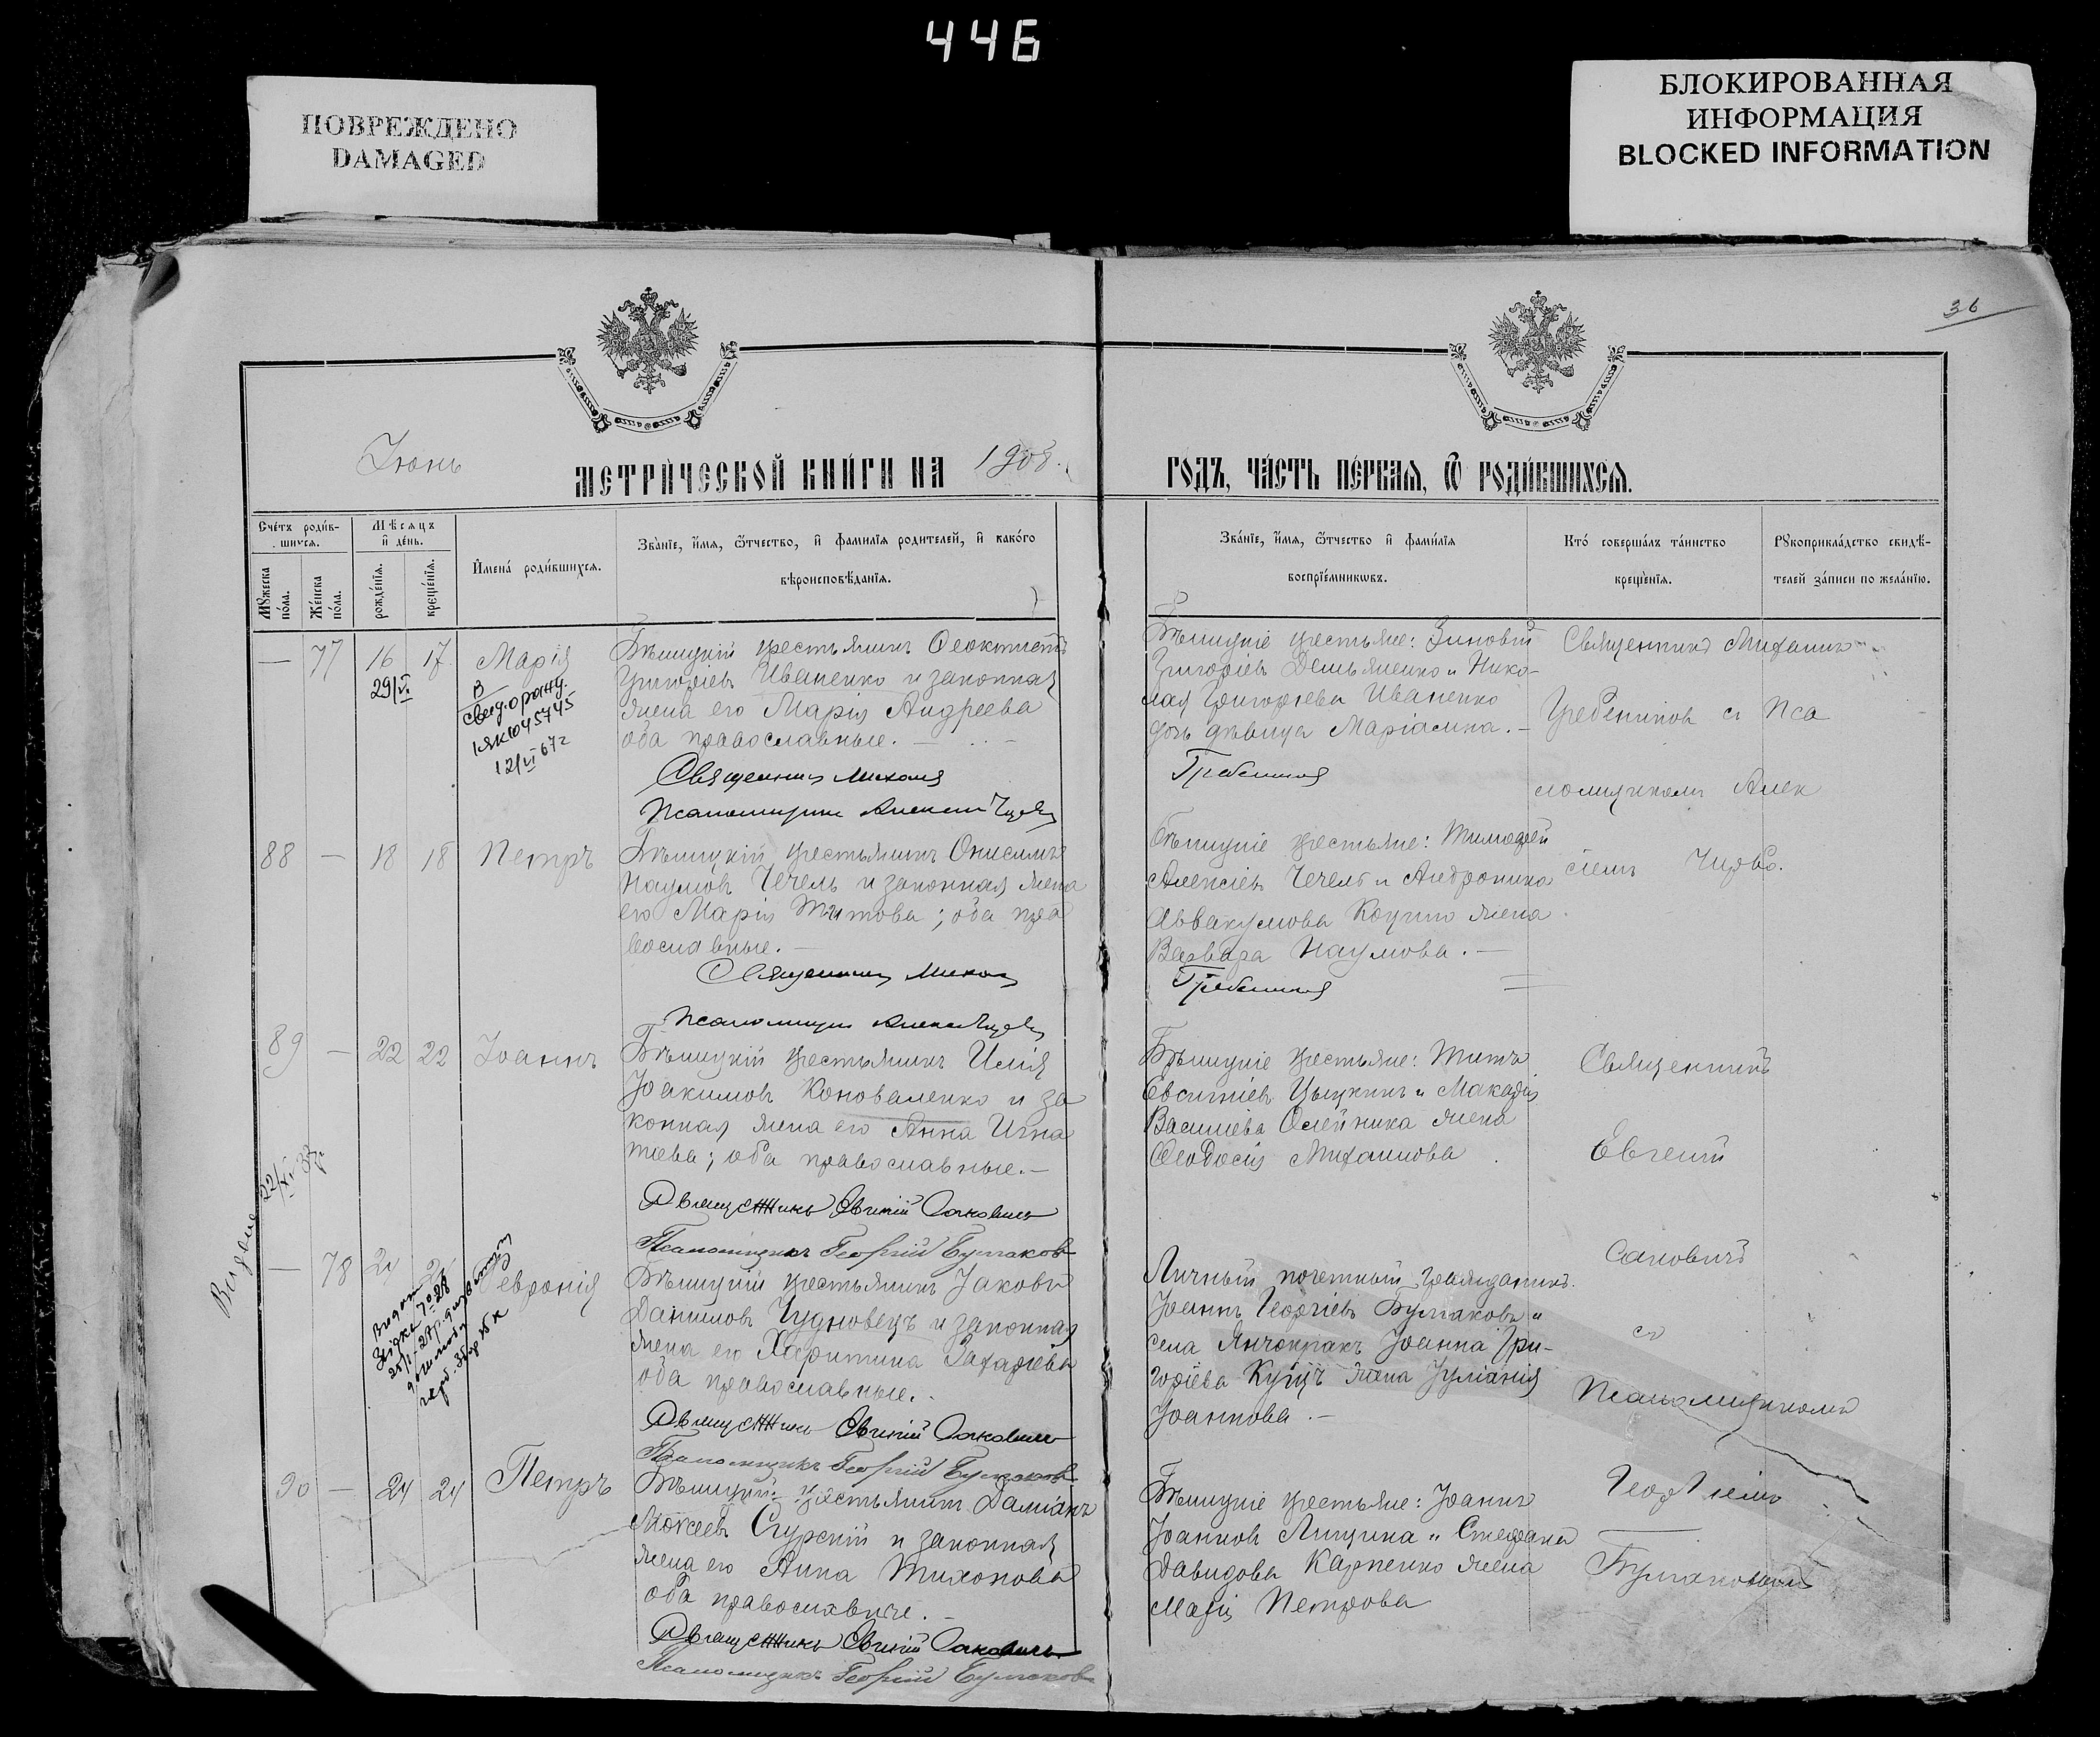 446
ПОВРЕЖДЕНО
DAMAGED
БЛОКИРОВАННАЯ
ИНФОРМАЦИЯ
BLOCKED INFORMATION
36
Іюнь
МЕТРИ́ЧЕСКОЙ КНИ́ГИ НА 1908.
ГОДЪ, ЧА́СТЬ ПЕ́РВАЯ, Ѿ РОДИ́ВШИХСЯ.
Сче́тъ роди́в-
шихся.
Мѣсяцъ
и҆ де́нь.
Мꙋ́жеска по́ла.
Же́нска по́ла.
рожде́нїѧ.
креще́нїѧ.
И҆мена́ роди́вшихся.
Зва́нїе, и҆́мѧ, ѻ҆́тчество, и҆ фамилїѧ родителей, и҆ како́гѡ
вѣроисповѣ́данїѧ.
Зва́нїе, и҆́мѧ, ѻ҆́тчество и҆ фами́лїѧ
воспрїе́мникѡвъ.
Кто́ соверша́лъ та́инство
креще́нїѧ.
Рꙋкоприкла́дство свидѣ́-
телей за́писи по жела́нїю.
— 77 16 17 Марія
29/VI
В
свид.о рожд.
IЯК 045745
12/VI 67г
крестьянинъ Ѳеоктистъ
Григоріевъ Иваненко и законная
жена его Марія Андреева
оба православные. —
Священникъ Михаилъ
Псаломщикъ Алексій
крестьяне: Зиновій
Григоріевъ Демьяненко и Нико-
лая Григоріева Иваненко
дочь дѣвица Маріамна. —
Гребенниковъ
Священникъ Михаилъ
Гребениковъ съ Пса
ломщикомъ Алек
сіемъ
88 — 18 18 Петръ
крестьянинъ Онисимъ
Наумовъ Чечель и законная жена
его Марія Титова; оба пра
вославные. —
Священникъ Михаилъ
Псаломщикъ Алексій
крестьяне: Тимофей
Алексіевъ Чечель и Андроника
Аввакумова жена
Варвара Наумова. —
Гребенниковъ
89 — 22 22 Іоаннъ
крестьянинъ Илія
Іоакимовъ Коноваленко и за
конная жена его Анна Игна
тіева; оба православные. —
Священникъ Евгеній Саковичъ
Псаломщикъ Георгій Булгаковъ
крестьяне: Титъ
Евсигніевъ и Макарія
Василіева Олейника жена
Ѳеодосія Михаилова
Священникъ
Евгеній
Саковичъ
съ
Псаломщикомъ
Георгіемъ
Булгаковымъ
22/XI 37г
— 78 24 Февронія
крестьянинъ Іаковъ
Даниловъ Чудновецъ и законная
жена его Харитина Захаріева
оба православные.
Священникъ Евгеній Саковичъ
Псаломщикъ Георгій Булгаковъ
Личный почетный гражданинъ
Іоаннъ Георгіевъ Булгаковъ и
села Янчокракъ Іоанна Гри-
горіева Куцъ жена Іуліанія
Іоаннова. —
90 — 24 24 Петръ
крестьянинъ Даміанъ
Моисеевъ Сгурскій и законная
жена его Анна Тихонова
оба православные. —
Священникъ Евгеній Саковичъ
Псаломщикъ Георгій Булгаковъ
крестьяне: Іоаннъ
Іоанновъ и Стефана
Давидова Карпенко жена
Марія Петрова